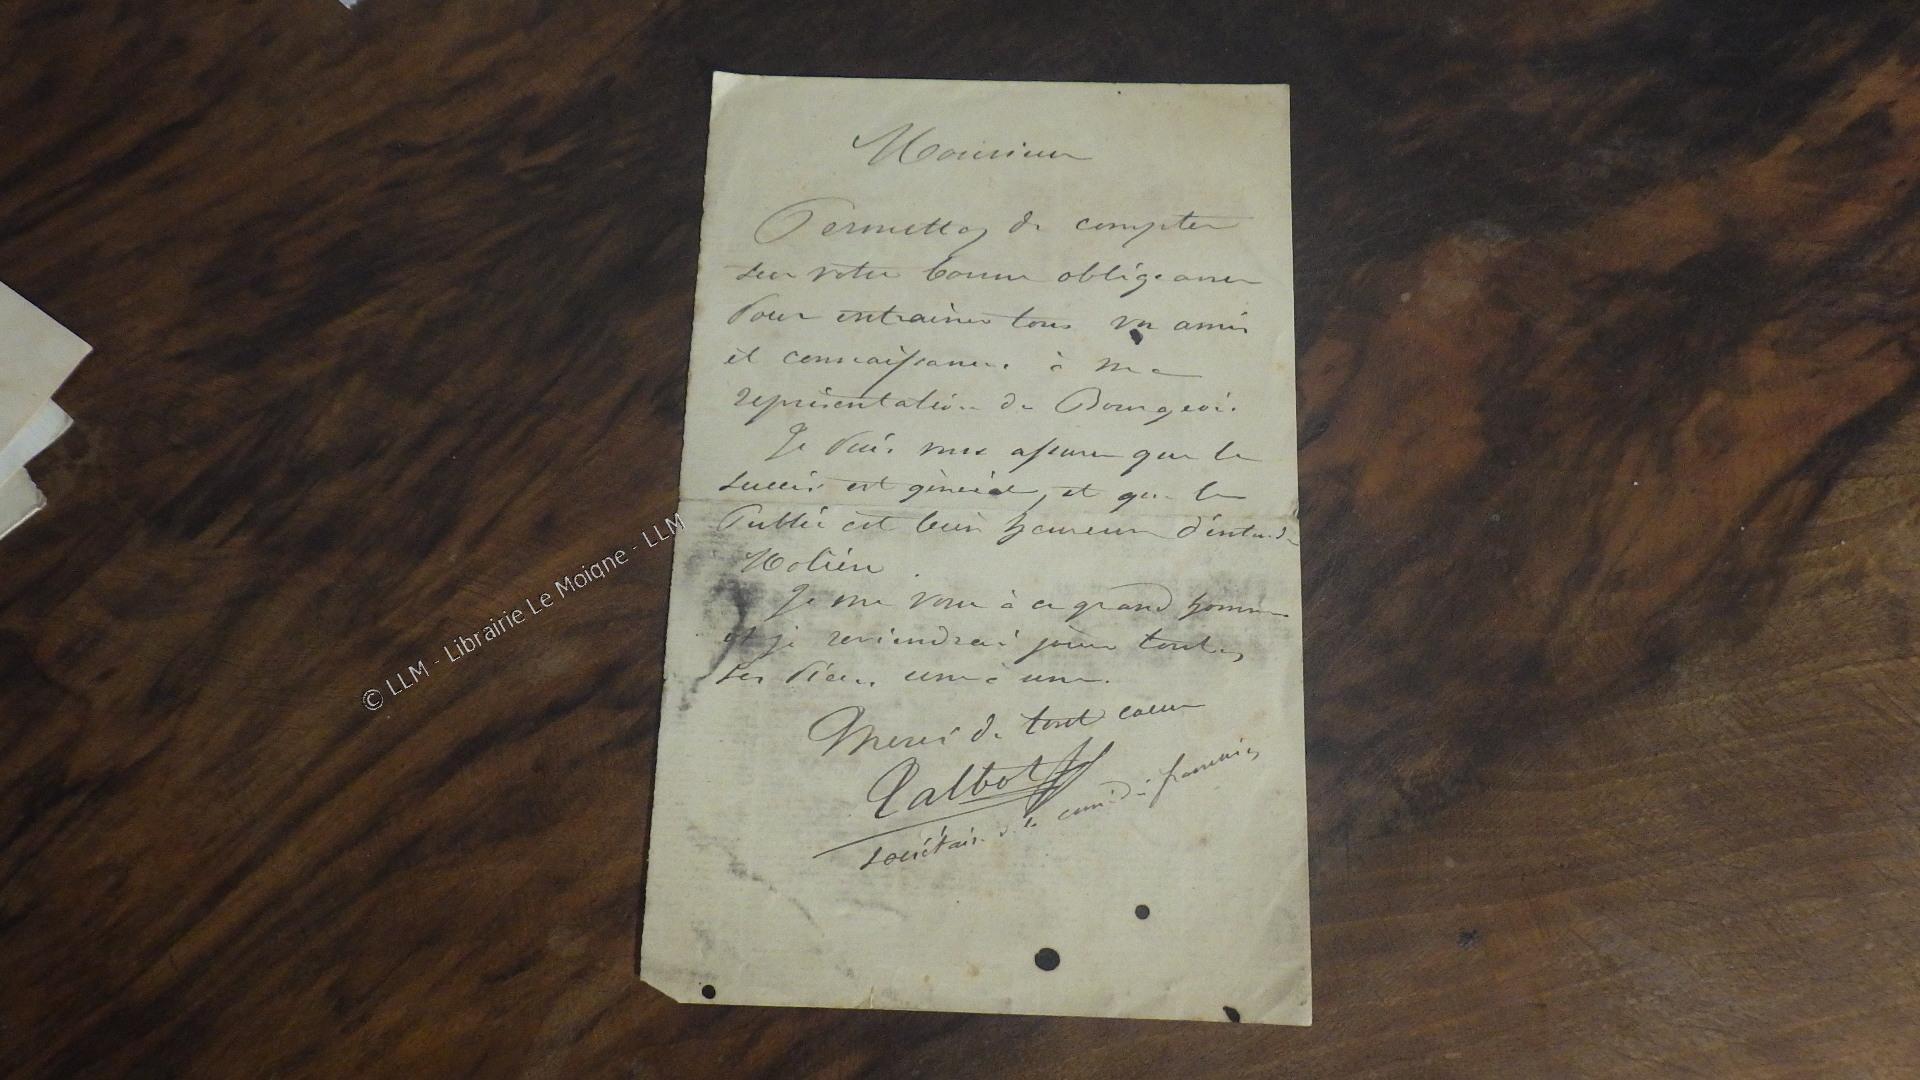 Monsieur
Permettez de compter
sur votre bonne obligeance
pour entrainer tous vos amis
et connaissances à ma
représentation du Bourgeois.
Je puis vous assurer que le
succès est général, et que le
Public est bien heureux d'entendre
Molière.
Je me voue à ce grand homme
et je reviendrai jouer toutes
ses pièces une à une.
Merci de tout coeur
Talbot
sociétaire de la comédie française
© LLM - Librairie Le Moigne - LLM